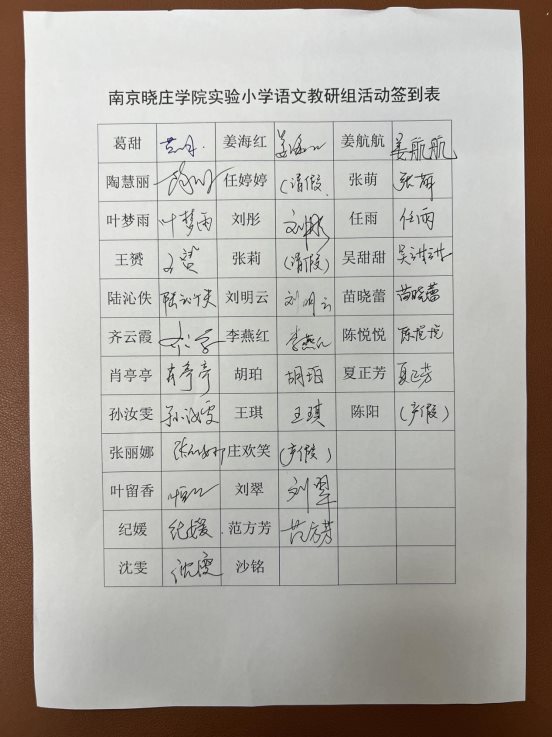 南京晓庄学院实验小学语文教研组活动签到表
葛甜 姜海红 姜海红 姜航航 姜航航
陶慧丽 任婷婷 (请假) 张萌 张萌
叶梦雨 叶梦雨 刘彤 刘彤 任雨 任雨
王赟 王赟 张莉 (请假) 吴甜甜 吴甜甜
陆沁佚 陆沁佚 刘明云 刘明云 苗晓蕾 苗晓蕾
齐云霞 李燕红 李燕红 陈悦悦 陈悦悦
肖亭亭 肖亭亭 胡珀 胡珀 夏正芳 夏正芳
孙汝雯 孙汝雯 王琪 王琪 陈阳 (产假)
张丽娜 张丽娜 庄欢笑 (产假)
叶留香 刘翠 刘翠
纪媛 纪媛 范方芳 范方芳
沈雯 沈雯 沙铭